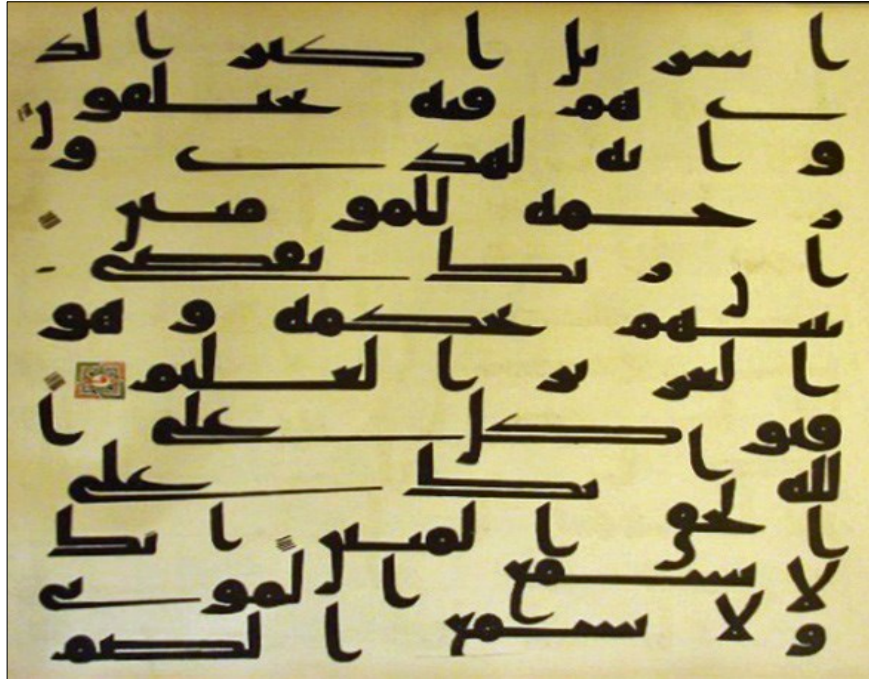 اسريل اكثر الذ
ى هم فيه يختلفون
وانه لهدى و
رحمة للمومنين
ان ربك يقضى
بينهم بحكمه وهو
العزيز العليم
فتوكل على ا
لله انك على
الحق المبين انك
لا تسمع الموتى
ولا تسمع الصم